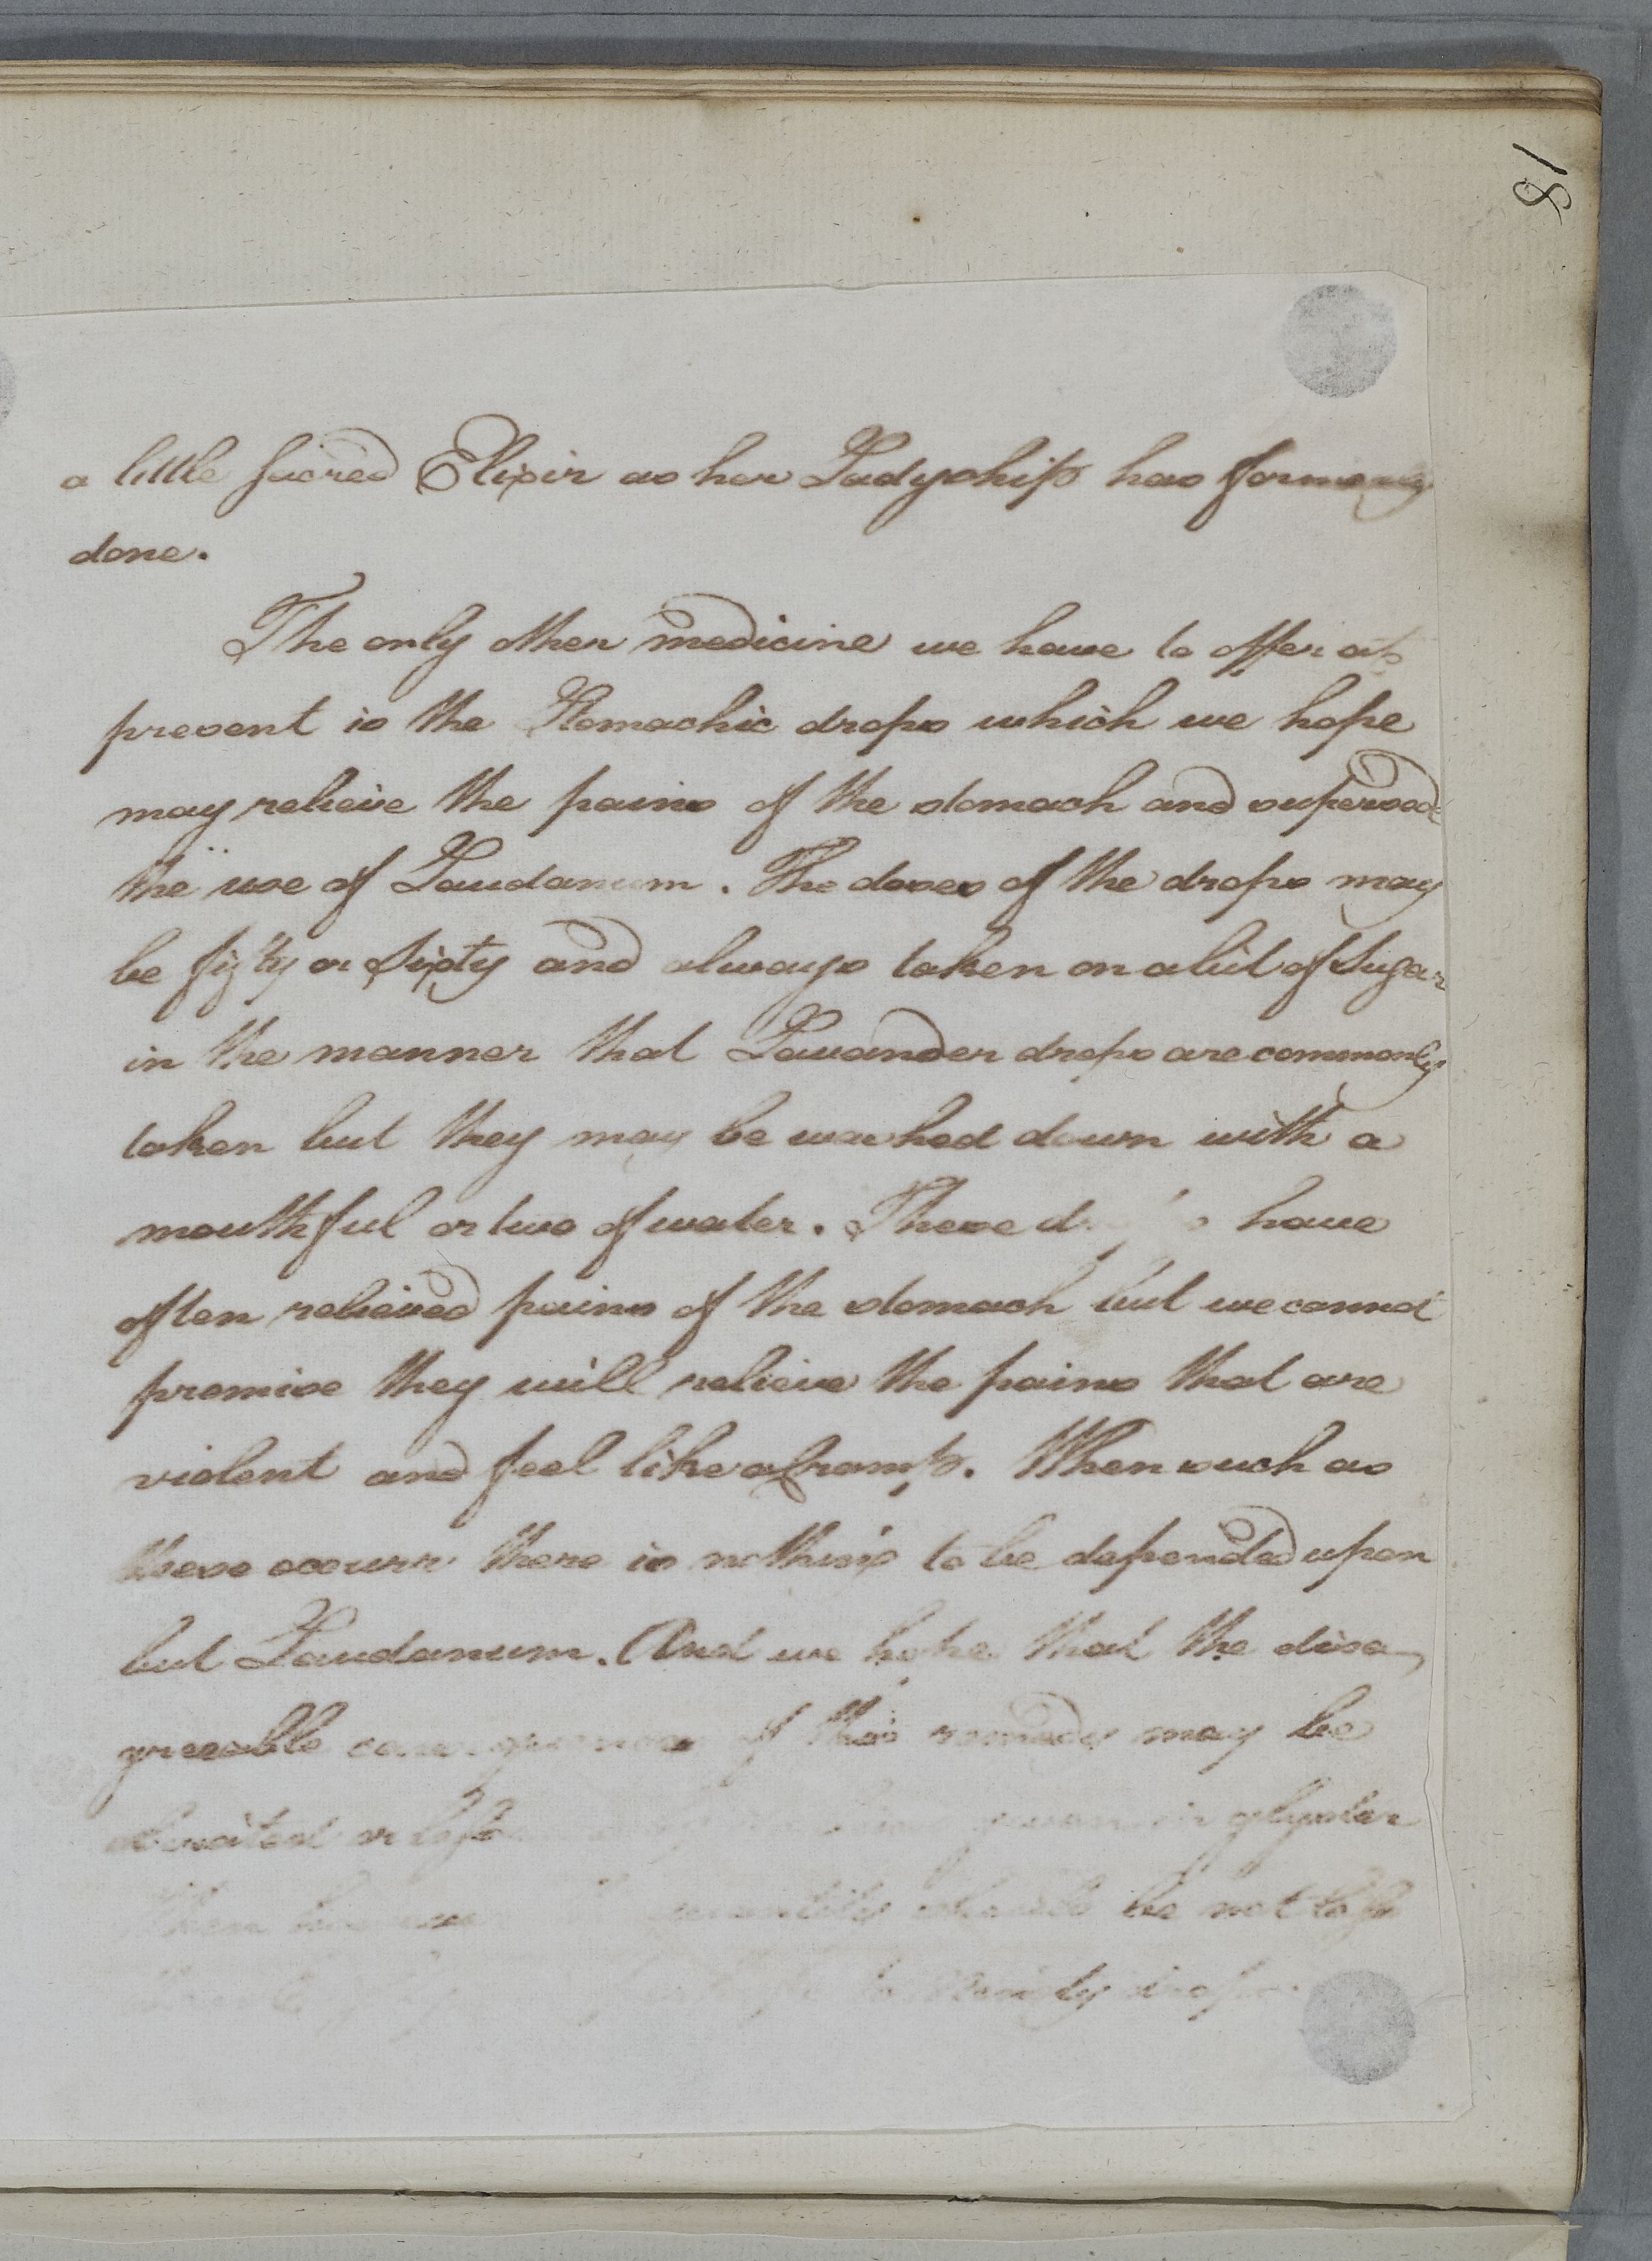 81
a little Sacred Elixir as her Ladyship has formerly
done.
The only other medicine we have to offer at
present is the Stomachic drops which we hope
may relieve the pains of the stomach and supersede
the use of Laudanum. The doses of the drops may
be fifty or Sixty and always taken on a bit of Sugar
in the manner that Lavander drops are commonly
taken but they may be washed down with a
mouthful or two of water. These have
often relieved pains of the stomach but we cannot
promise they will relieve the pains that are
violent and feel like a Cramp. When such as
these occurr there is nothing to be depended upon
but Laudanum. And we hope that the disa
greeable consequences of this remedy may be
obviated or less given in glyster
quantity should be not less
drops.